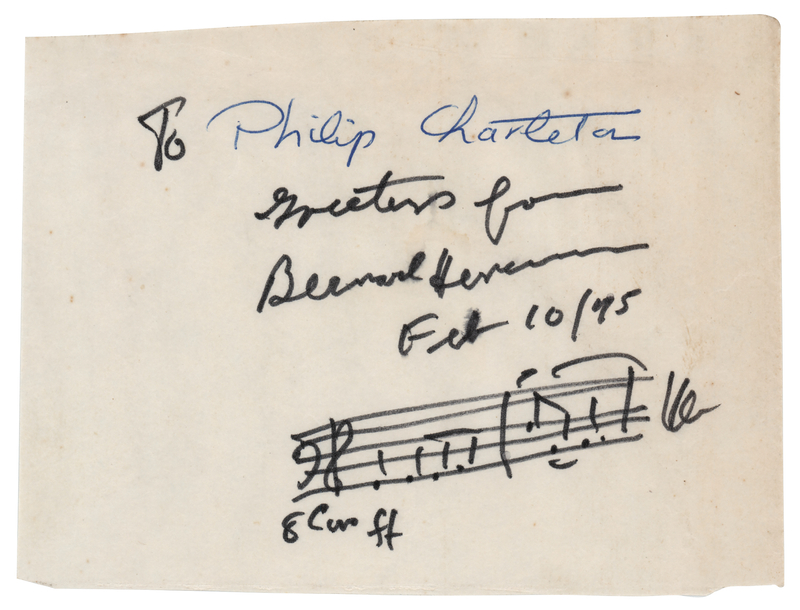 To Philip Charleton
Greetings from
Bernard Herrmann
Feb 10/75
ff